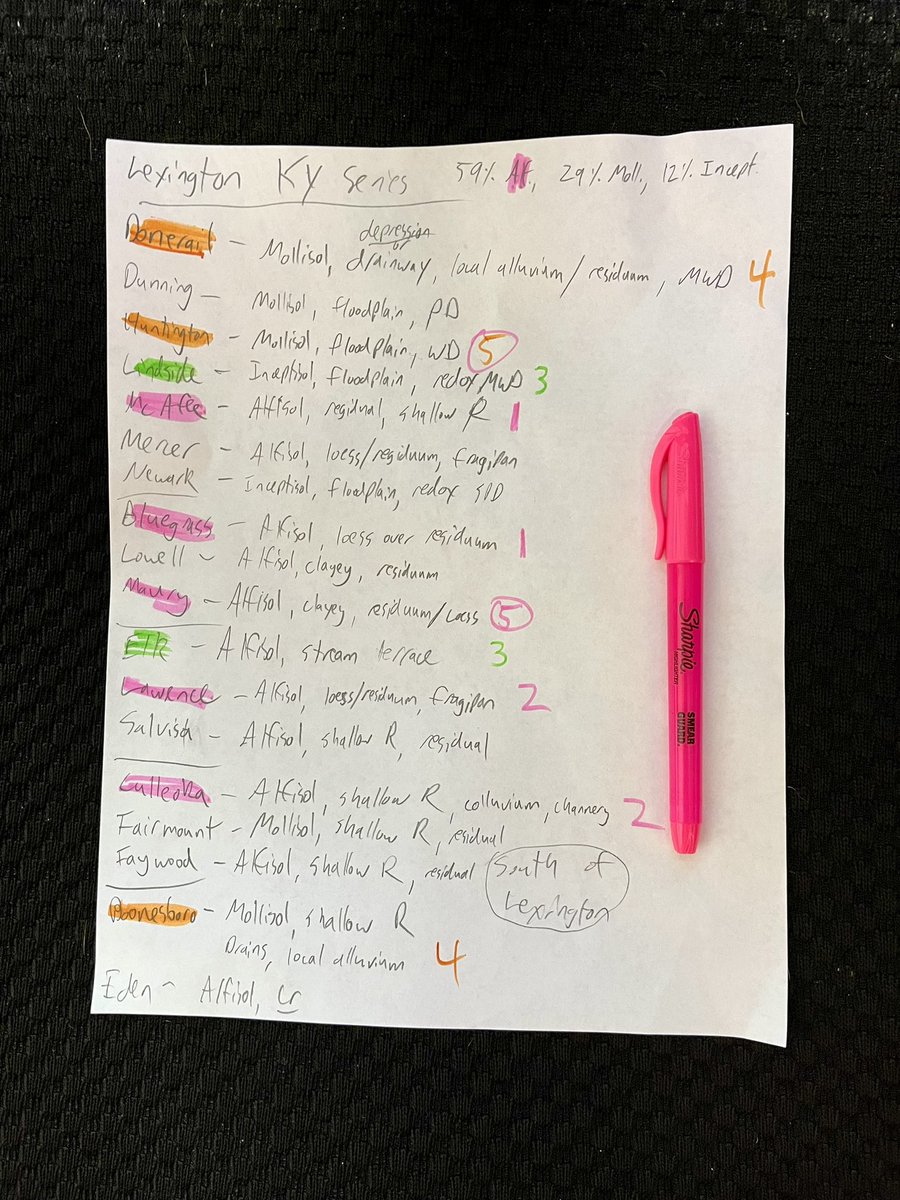 Lexington Ky Series 59% Alf., 29% Moll., 12% Incept.
Donerail - Mollisol, depression or drainway, local alluvium/residuum, MWD 4
Dunning - Mollisol, floodplain, PD
Huntington - Mollisol, floodplain, WD 5
Lindside - Inceptisol, floodplain, redox MWD 3
McAfee - Alfisol, residual, shallow R 1
Mercer - Alfisol, loess/residuum, fragipan
Newark - Inceptisol, floodplain, redox SPD
Bluegrass - Alfisol, loess over residuum 1
Lowell - Alfisol, clayey, residuum
Maury - Alfisol, clayey, residuum/Loess 5
Elk - Alfisol, stream terrace 3
Lawrence - Alfisol, loess/residuum, fragipan 2
Salvisa - Alfisol, shallow R, residual
Culleoka - Alfisol, shallow R, colluvium, channery 2
Fairmount - Mollisol, shallow R, residual
Faywood - Alfisol, shallow R, residual
South of
Lexington
Boonesboro - Mollisol, shallow R
Drains, local alluvium 4
Eden - Alfisol, Cr
Sharpie.
HIGHLIGHTER
SMEAR
GUARD.